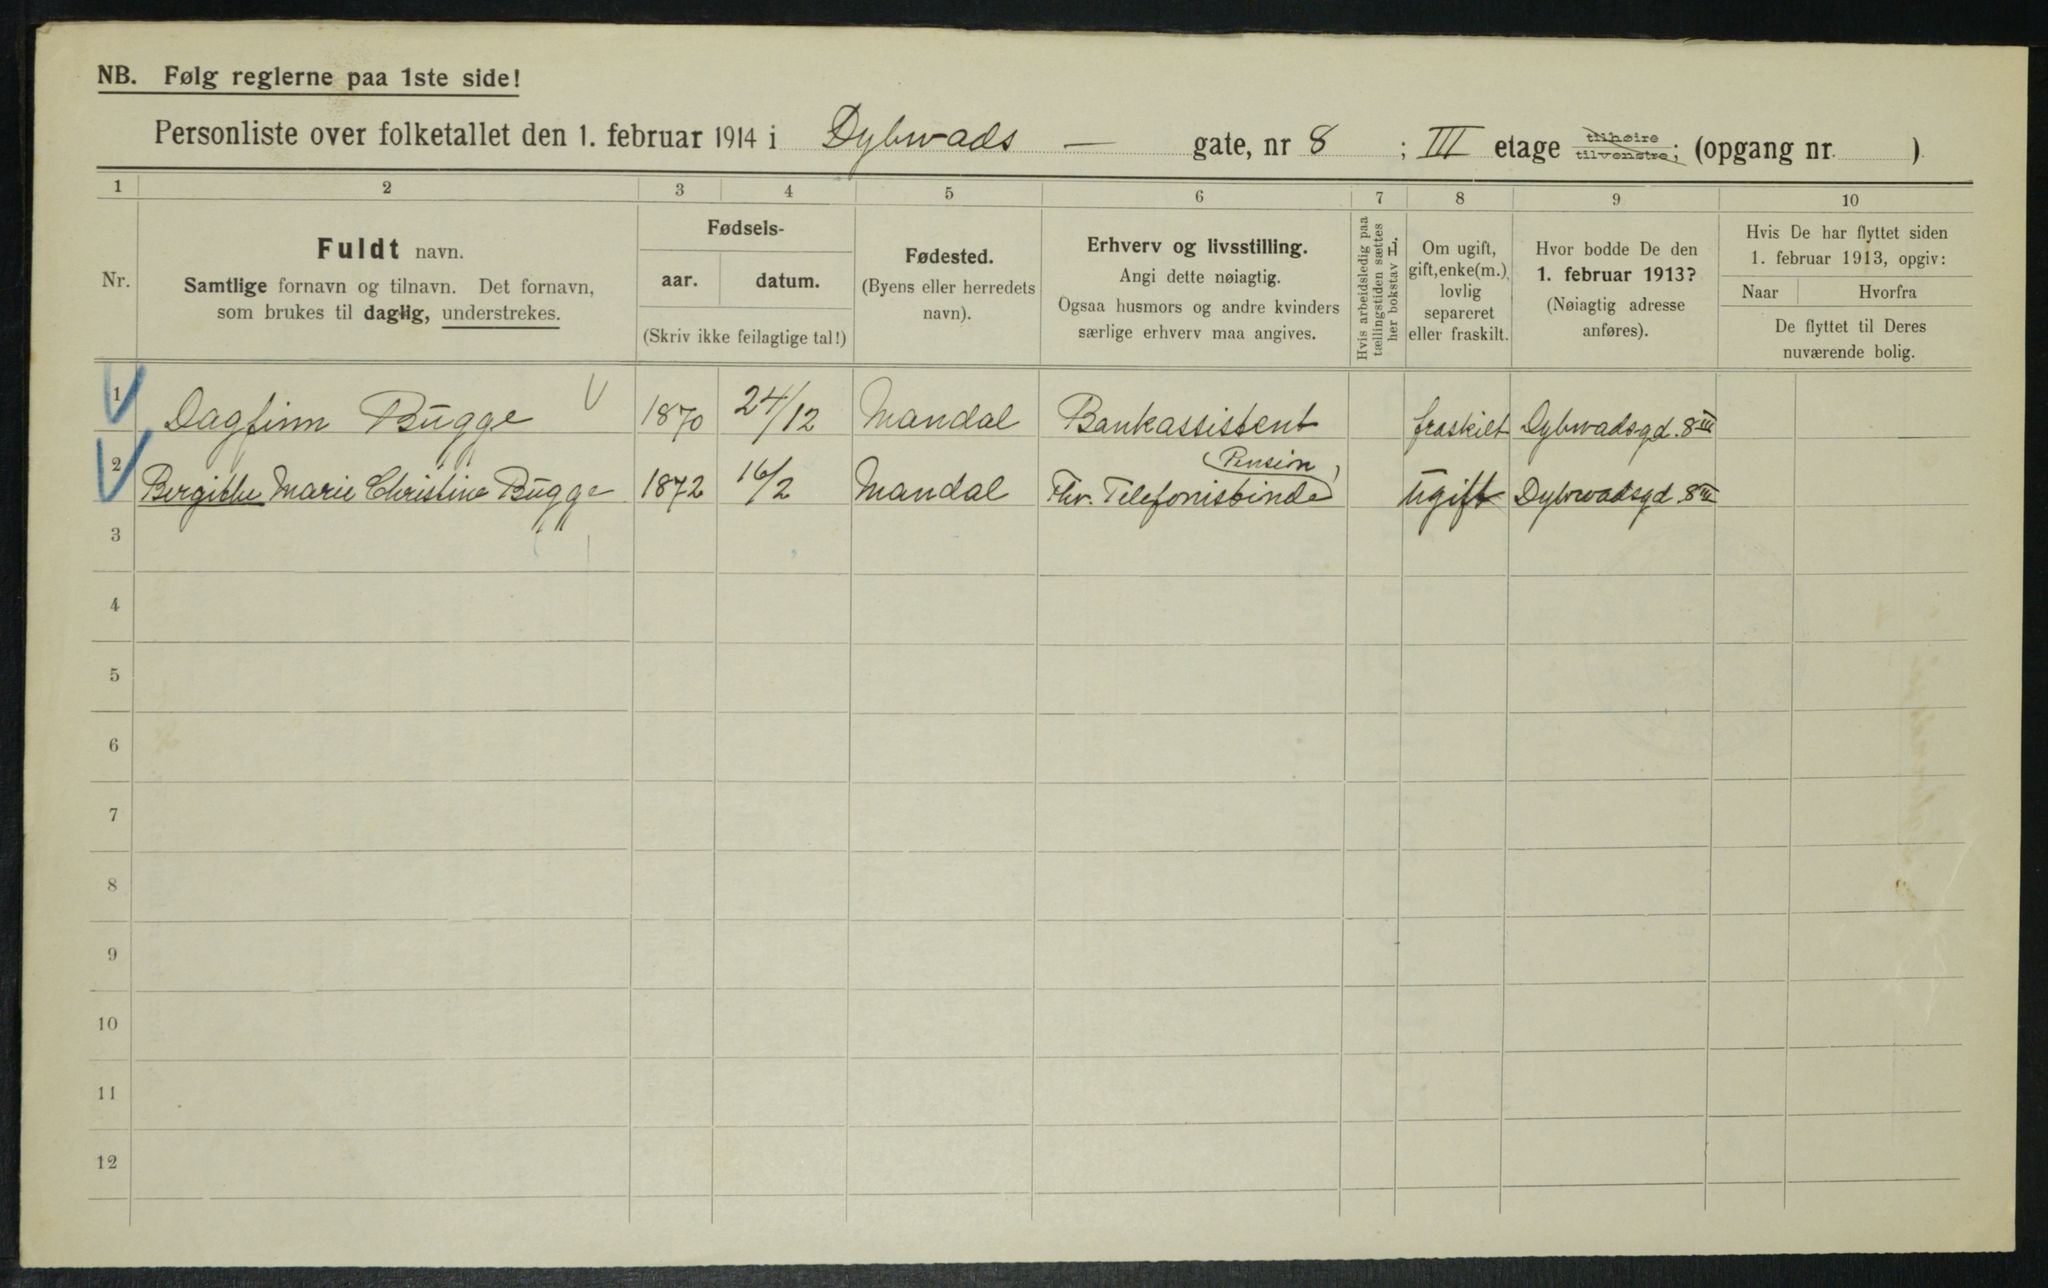 NB. Følg reglerne paa 1ste side!
Personliste over folketallet den 1. februar 1914 i Dybwads — gate, nr 8 ; III etage tilhøire tilvenstre; (opgang nr. )
1 2 3 4 5 6 7 8 9 10
Nr.
Fuldt navn.
Samtlige fornavn og tilnavn. Det fornavn,
som brukes til daglig, understrekes.
Fødsels-
aar. datum.
(Skriv ikke feilagtige tal!)
Fødested.
(Byens eller herredets
navn).
Erhverv og livsstilling.
Angi dette nøiagtig.
Ogsaa husmors og andre kvinders
særlige erhverv maa angives.
Hvis arbeidsledig paa
tællingstiden sættes
her bokstav H.
Om ugift,
gift, enke(m.),
lovlig
separeret
eller fraskilt.
Hvor bodde De den
1. februar 1913?
(Nøiagtig adresse
anføres).
Hvis De har flyttet siden
1. februar 1913, opgiv:
Naar Hvorfra
De flyttet til Deres
nuværende bolig.
1 Dagfinn Bugge 1870 24/12 Mandal Bankassistent fraskilt Dybwadsgd. 8III
Pension
2 Bergithe Marie Christine Bugge 1872 16/2 Mandal Fhv. Telefonistinde ugift Dybwadsgd. 8III
3
4
5
6
7
8
9
10
11
12